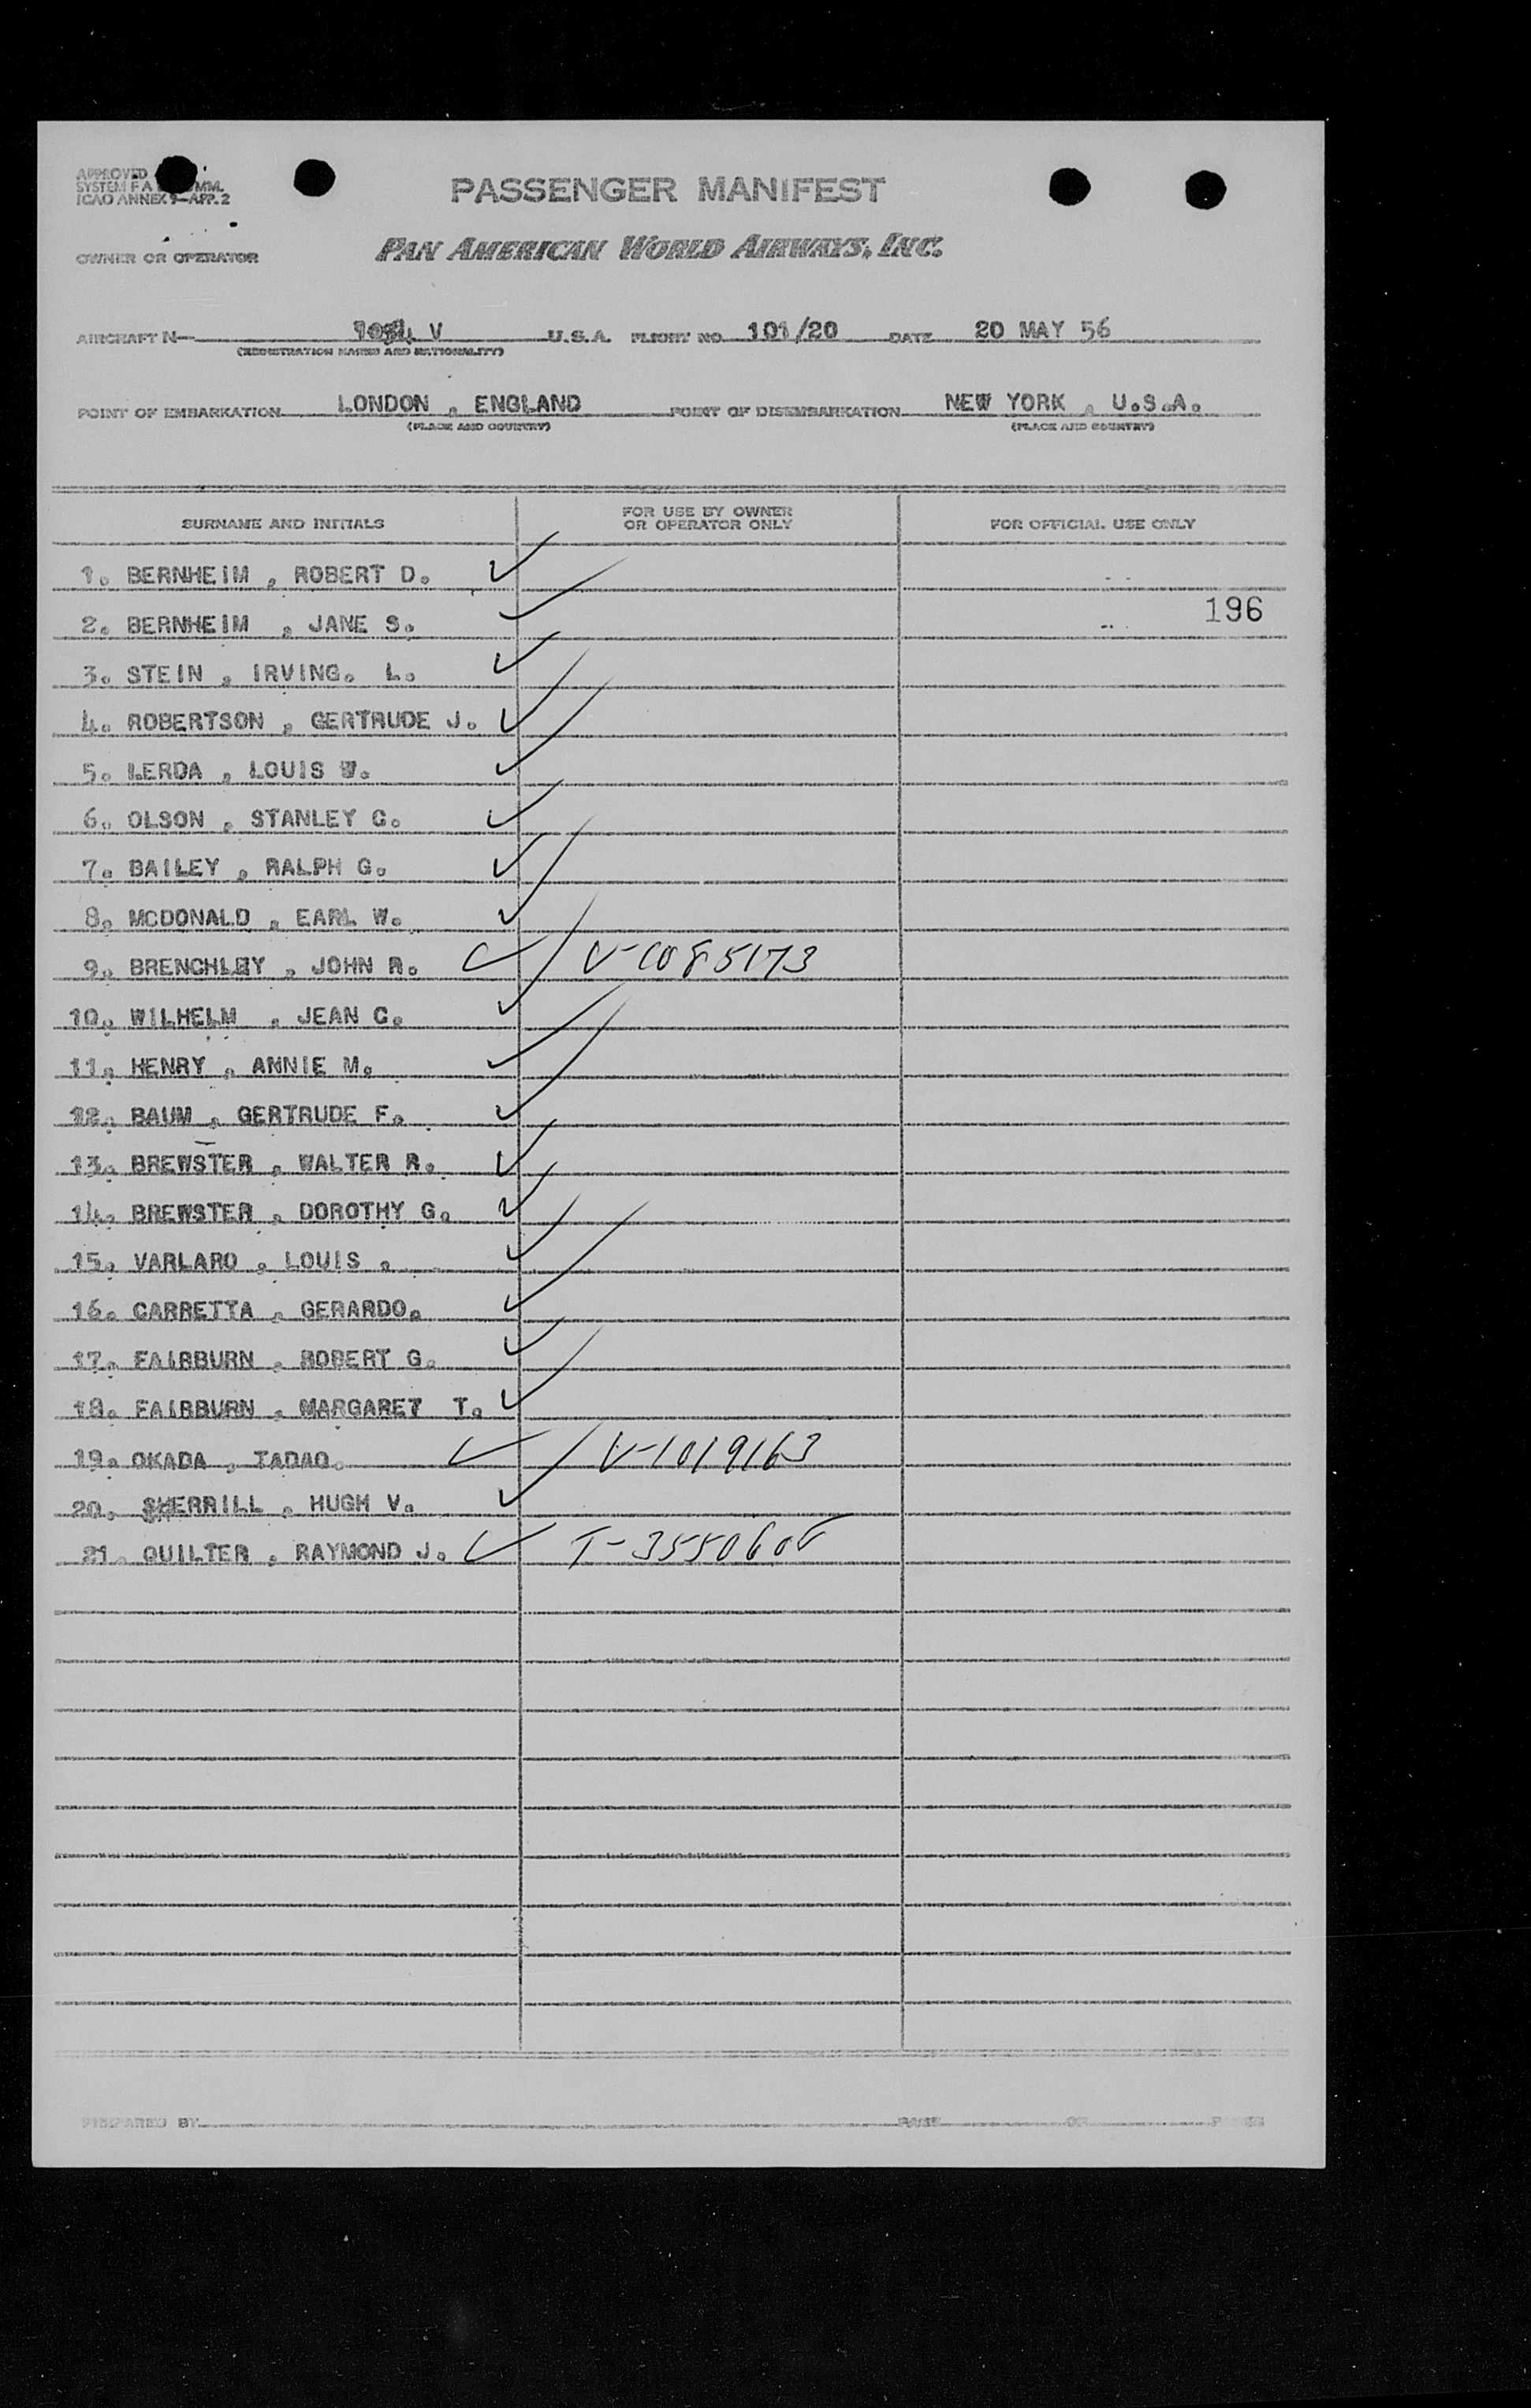 APPROVED
SYSTEM F A MM.
ICAO ANNEX 9-APP. 2
PASSENGER MANIFEST
OWNER OR OPERATOR PAN AMERICAN WORLD AIRWAYS, INC.
AIRCRAFT N— V U.S.A. FLIGHT NO 101/20 DATE 20 MAY 56
(REGISTRATION MARKS AND NATIONALITY)
POINT OF EMBARKATION LONDON , ENGLAND POINT OF DISEMBARKATION NEW YORK , U.S.A.
(PLACE AND COUNTRY) (PLACE AND COUNTRY)
SURNAME AND INITIALS FOR USE BY OWNER OR OPERATOR ONLY FOR OFFICIAL USE ONLY
1. BERNHEIM , ROBERT D.
196
2. BERNHEIM , JANE S.
3. STEIN , IRVING. L.
4. ROBERTSON , GERTRUDE J.
5. LERDA , LOUIS W.
6. OLSON , STANLEY C.
7. BAILEY , RALPH G.
8. MCDONALD , EARL W.
9. BRENCHLEY , JOHN R. V-1085173
10. WILHELM , JEAN C.
11. HENRY , ANNIE M.
12. BAUM , GERTRUDE F.
13. BREWSTER , WALTER R.
14. BREWSTER , DOROTHY G.
15. VARLARO , LOUIS .
16. CARRETTA , GERARDO.
17. FAIRBURN , ROBERT G.
18. FAIRBURN , MARGARET T.
19. OKADA , TADAO. V-1019163
20. SHERRILL , HUGH V.
21. QUILTER , RAYMOND J. T-3550608
PREPARED BY PAGE OF PAGES